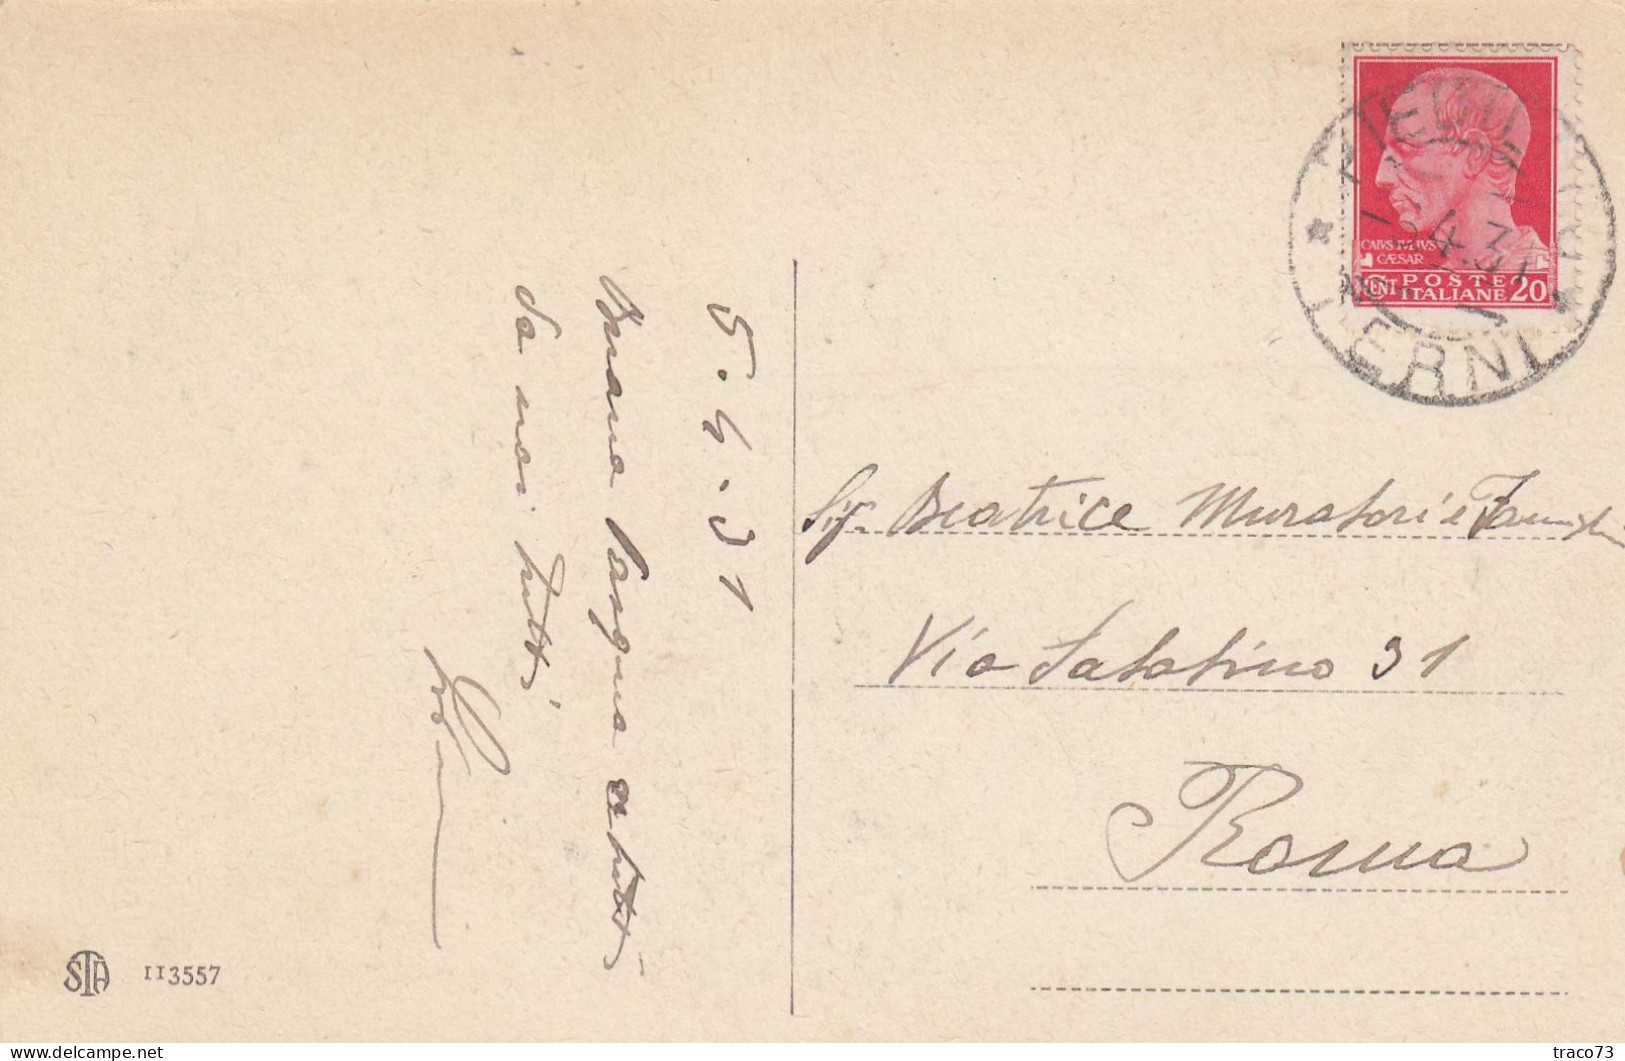 5.4.31
Buona Pasqua a tutti
Da noi tutti
CAIVS IVLIVS
CÆSAR
CENT POSTE
ITALIANE 20
5 4 31
TERNI
Sig. Beatrice Muratori e
Via Salatino 31
Roma
STA 113557
traco73
delcampe.net